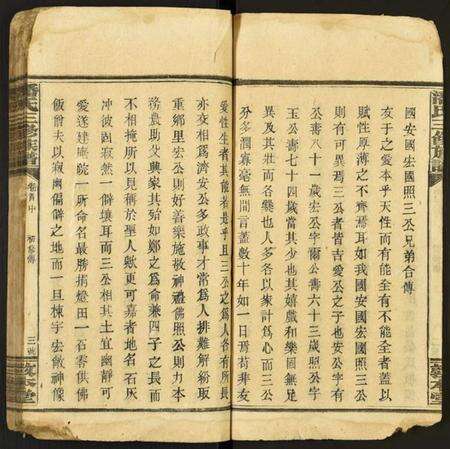 國安國宏國照三公兄弟合傳
友于之愛本乎天性而有能全有不能全者蓋以
賦性厚薄之不齊焉耳如我國安國宏國照三公
則有可異焉三公者皆吉愛公之子也安公字有
公壽八十一歲宏公字爾公壽六十三歲照公字
玉公壽七十四歲當其少也其嬉戲和樂固無足
異及其壯而各爨也人多各以家計爲心而三公
分多潤寡毫無間言蓋數十年如一日焉苟非友
愛性生者其能若是乎且三公之爲人各有所長
亦交相爲濟安公多政事才常爲人排難解紛取
重鄉里宏公則好善樂施敬神禮佛照公則力本
務農助父興家其殆如鄭之爲命兼四子之長而
不相掩所以見稱於聖人歟更可嘉者地名石灰
冲彼固寂然一僻壤耳而三公相其土宜幽靜可
愛遂建庵院一所命名最勝捐燈田一石零供佛
飯僧夫以寂幽僻之地而一旦棟宇宏敞神像
潘氏三修族譜
卷首中
三
敦本堂